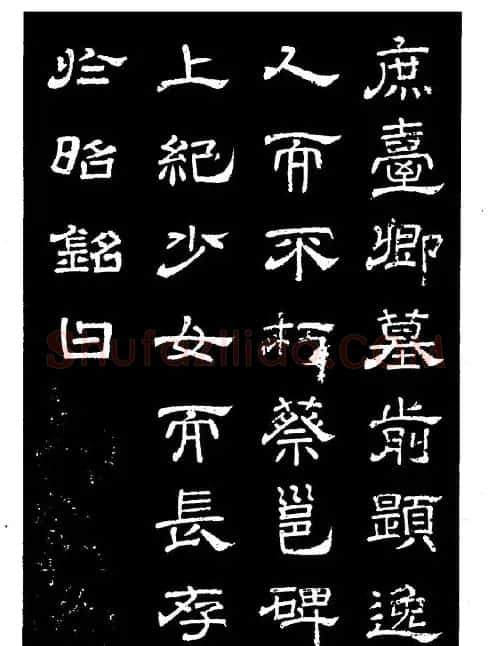 庶臺卿墓前題逸
人而不朽蔡邕碑
上紀少女而長存
於昭銘曰
Shufaziliao.com